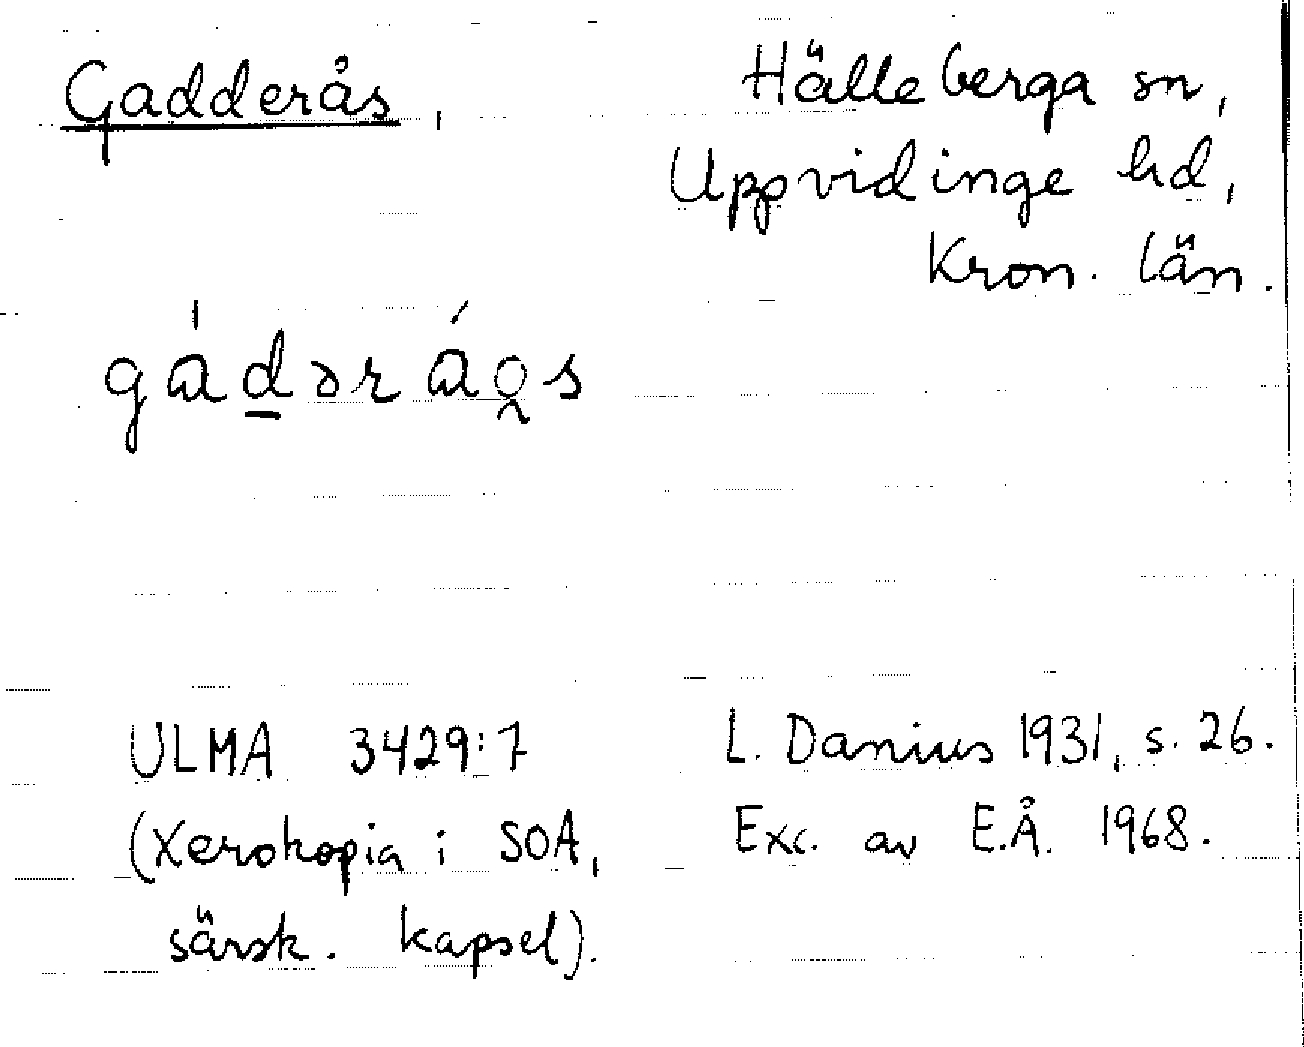 Gadderås, Hälleberga sn,
Uppvidinge hd,
Kron. län.
gád̲əráo̯s
ULMA 3429:7 L. Danius 1931, s. 26.
(Xerokopia i SOA, Exc. av E.Å. 1968.
särsk. kapsel).